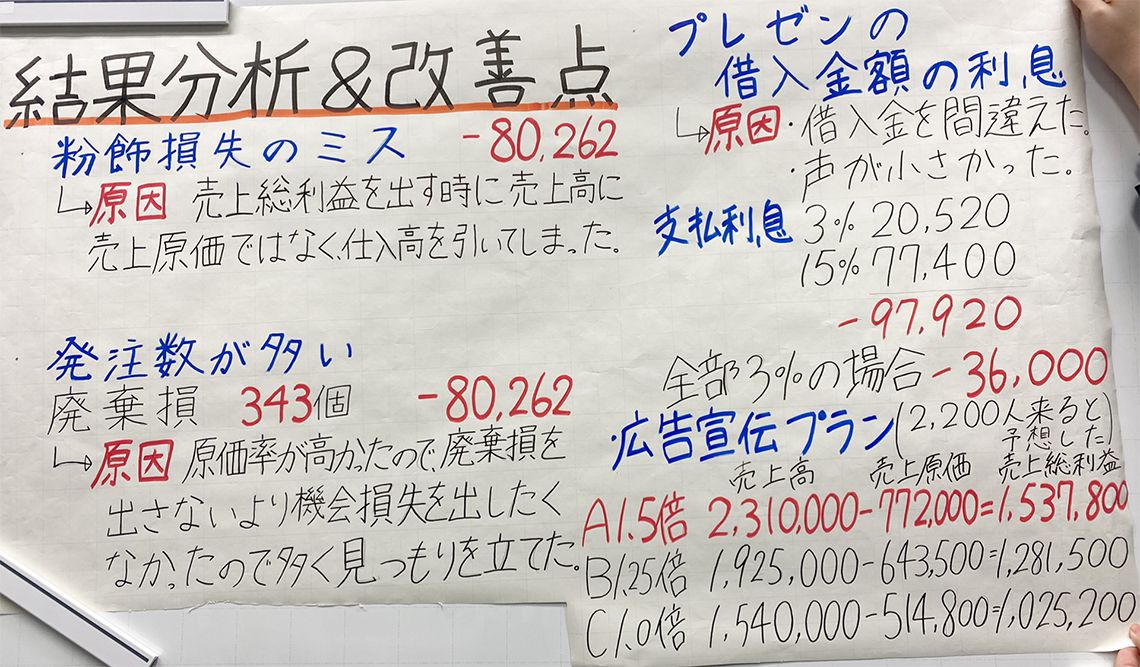 結果分析&改善点
粉飾損失のミス -80,262
↳原因 売上総利益を出す時に売上高に
売上原価ではなく、仕入高を引いてしまった。
発注数が多い
廃棄損 343個 -80,262
↳原因 原価率が高かったので、廃棄損を
出さないより機会損失を出したく
なかったので多く見つもりを立てた。
プレゼンの
借入金額の利息
↳原因・借入金を間違えた。
・声が小さかった。
支払利息 3% 20,520
15% 77,400
-97,920
全部3%の場合 -36,000
・広告宣伝プラン(2,200人来ると
予想した)
売上高 売上原価 売上総利益
A1.5倍 2,310,000-772,000=1,537,800
B1.25倍 1,925,000-643,500=1,281,500
C1.0倍 1,540,000-514,800=1,025,200